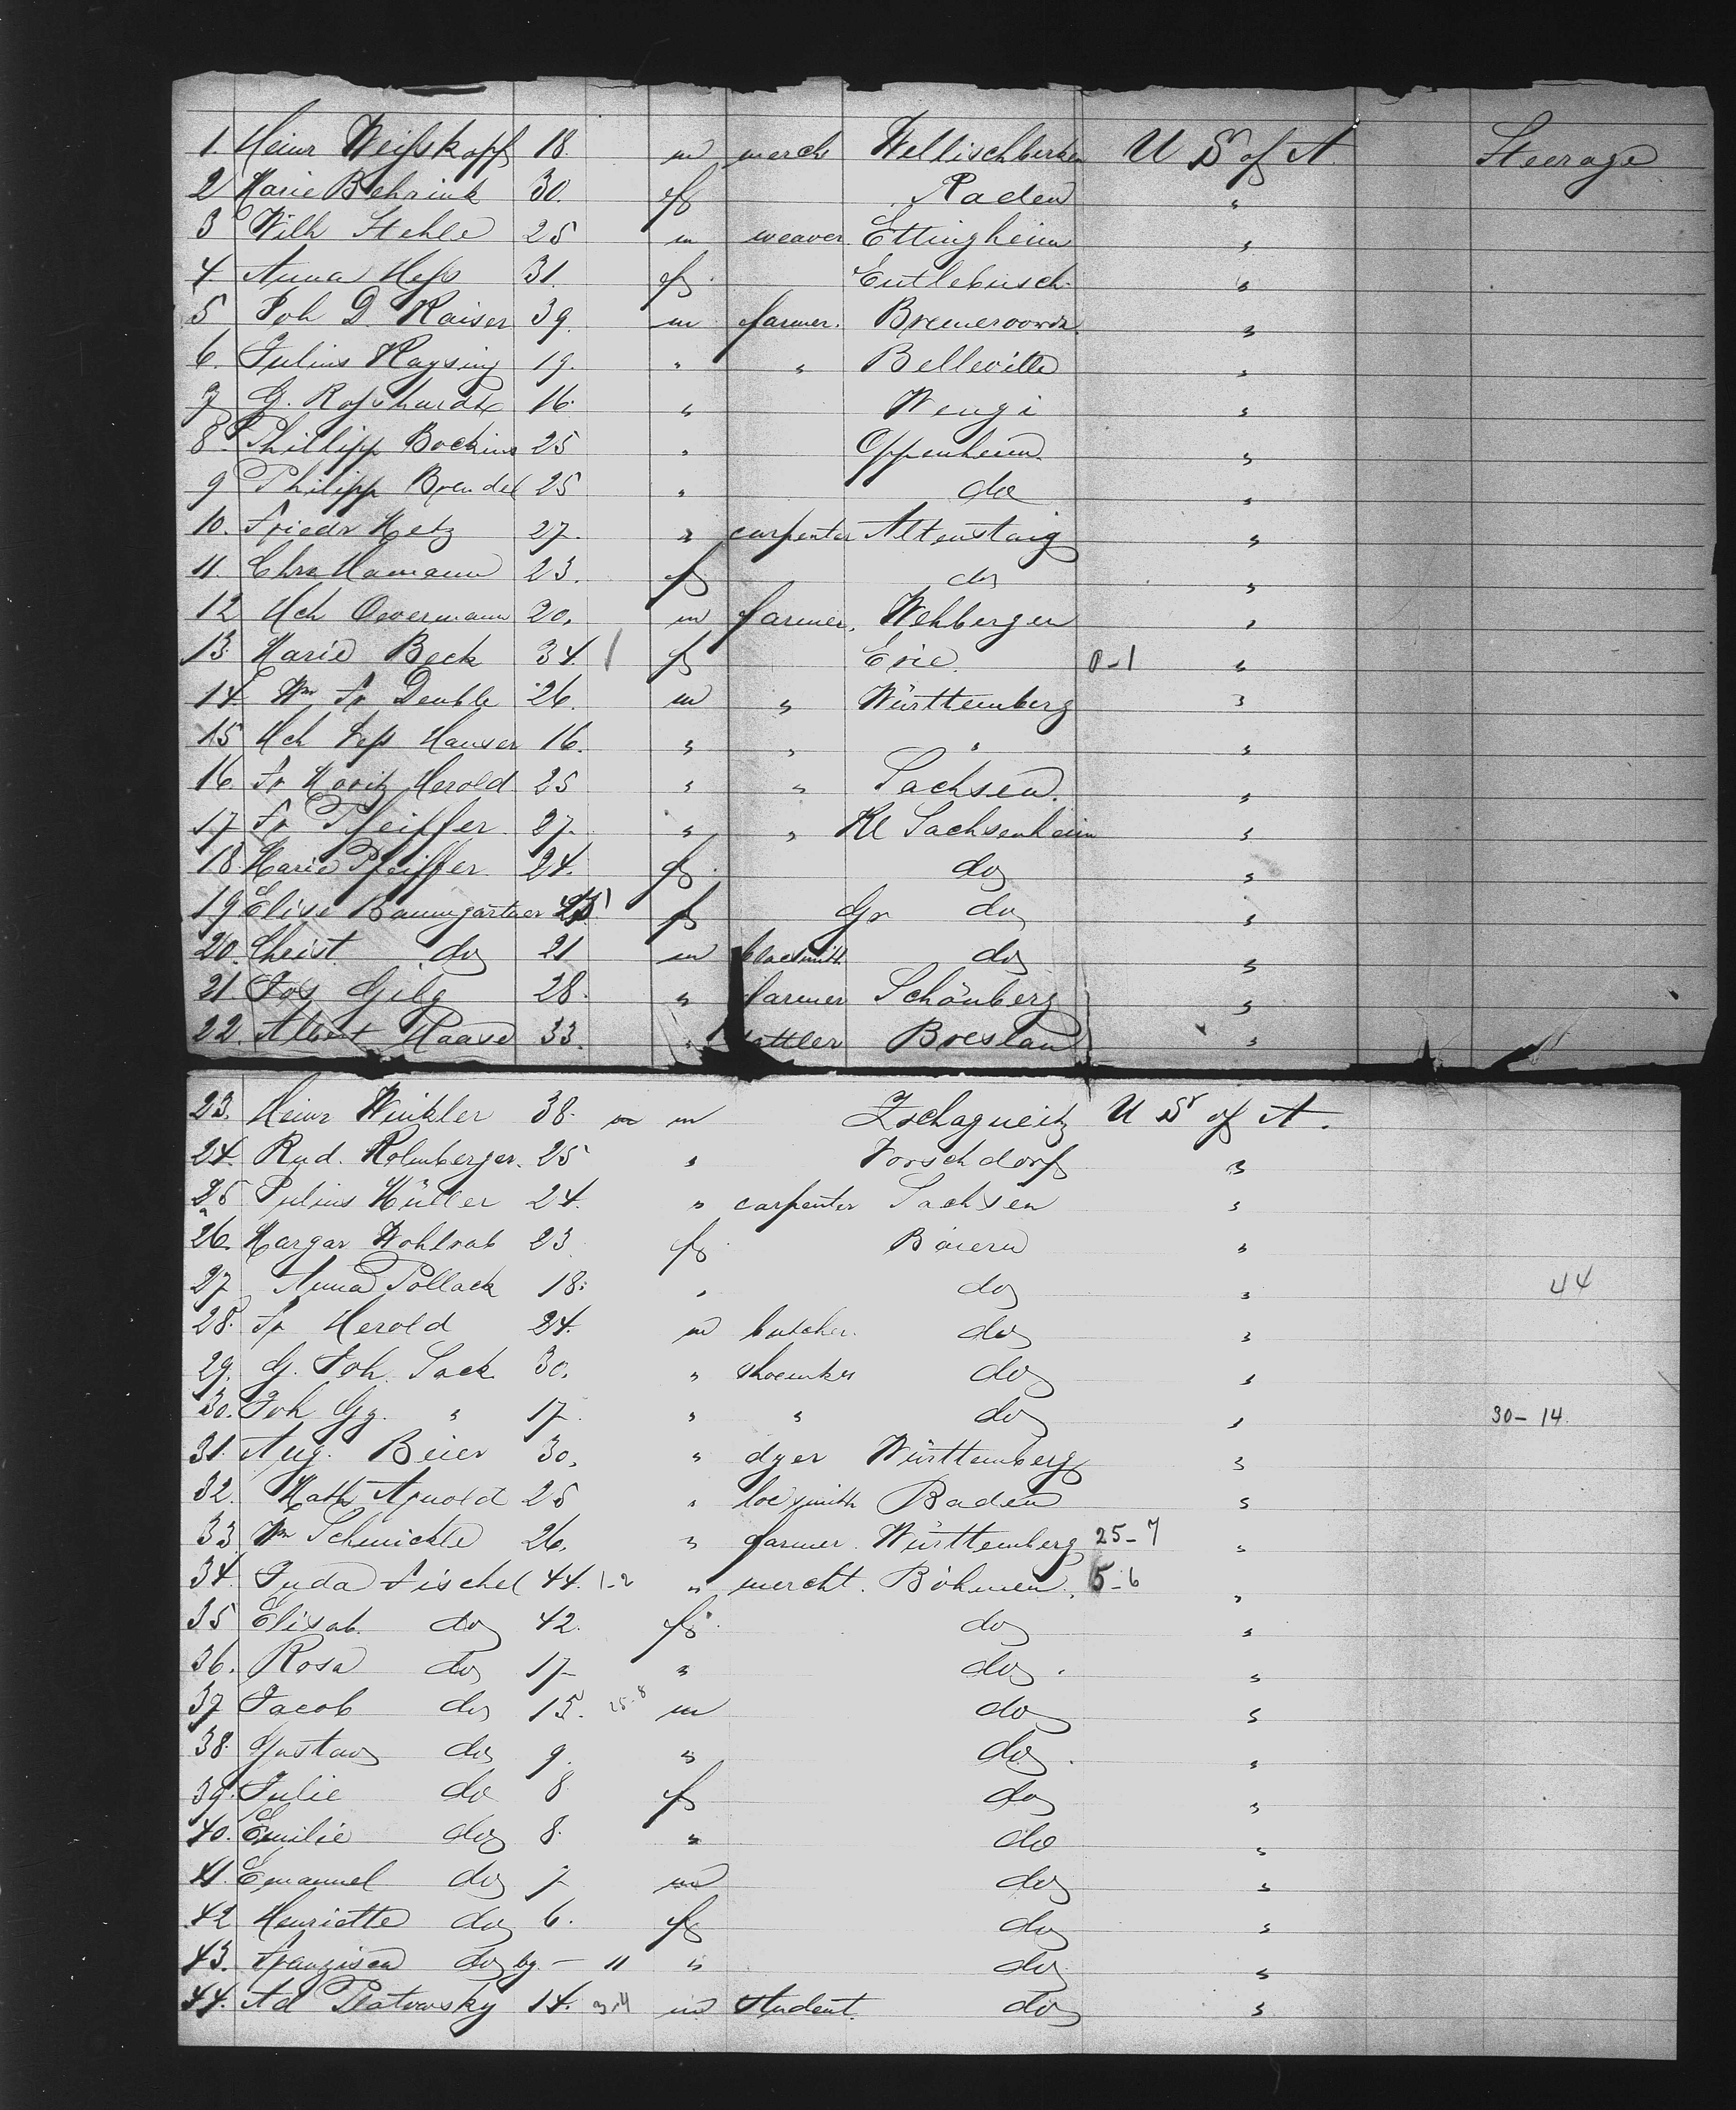 1. Heinr Weißkopf 18. m merch Wellischbirken U S of A. Steerage
2 Marie Behrink 30. f Raden "
3 Wilh Stehle 25 m weaver Ettingheim "
4. Anna Heß 31. f Entlebusch "
5 Joh D. Kaiser 39. m farmer. Bremervoorde "
6. Julius Kaysing 19. " " Belleville "
7 G. Roßhardt 16. " Wengi "
8. Phillipp Bockius 25 " Oppenheim "
9 Philipp Brendel 25 " do "
10. Friedr Hetz 27. " carpenter Altenstaig "
11. Chre Hamann 23. f do "
12 Hch Oevermann 20. m farmer. Wehbergen "
13. Marie Beck 34. 1 f Erie. 0-1 "
14. Wm Fr Deuble 26. m " Württemberg "
15. Hch Hauser 16. " " " "
16. Fr Moritz Herold 25 " " Sachsen. "
17 Fr Pfeiffer 27. " " Kl Sachsenheim "
18. Marie Pfeiffer 24. f do "
19 Elise Baumgärtner f Gr do "
20. Christ. do 21 m blacsmith do "
21. Jos Gilg 28. " farmer Schönberg "
22. Albert Haase 33. " sattler Breslau "
23. Heinr Winkler 38. m Zschagneitz U S of A.
24. Rud. Kolmberger. 25 " Forschdorf "
25 Julius Müller 24. " carpenter Sachsen "
26. Margar Wohlrab 23 f Baiern "
27 Anna Pollack 18. " do " 44
28. Fr Herold 24. m butcher. do "
29. G. Joh. Sack 30. " shoemkr do "
30. Joh Gg. " 17. " " do " 30-14
31. Aug. Beier 30. " dyer Württemberg "
32. Math Arnold 25 " locsmith Baden "
33. Wm Schmickle 26. " farmer. Württemberg 25-7 "
34. Juda Fischel 44. 1-2 " mercht. Böhmen. 5-6 "
35 Elisab. do 42. f do "
36. Rosa do 17 " do. "
37 Jacob do 15. 25-8 m do "
38. Gustav do 9. " do. "
39. Julie do 8 f do "
40. Emilie do 8. " do "
41. Emanuel do 7 m do "
42 Henriette do 6. f do "
43. Franzisca do by — 11 " do "
44. Ad Piatowsky 14. m student. do "